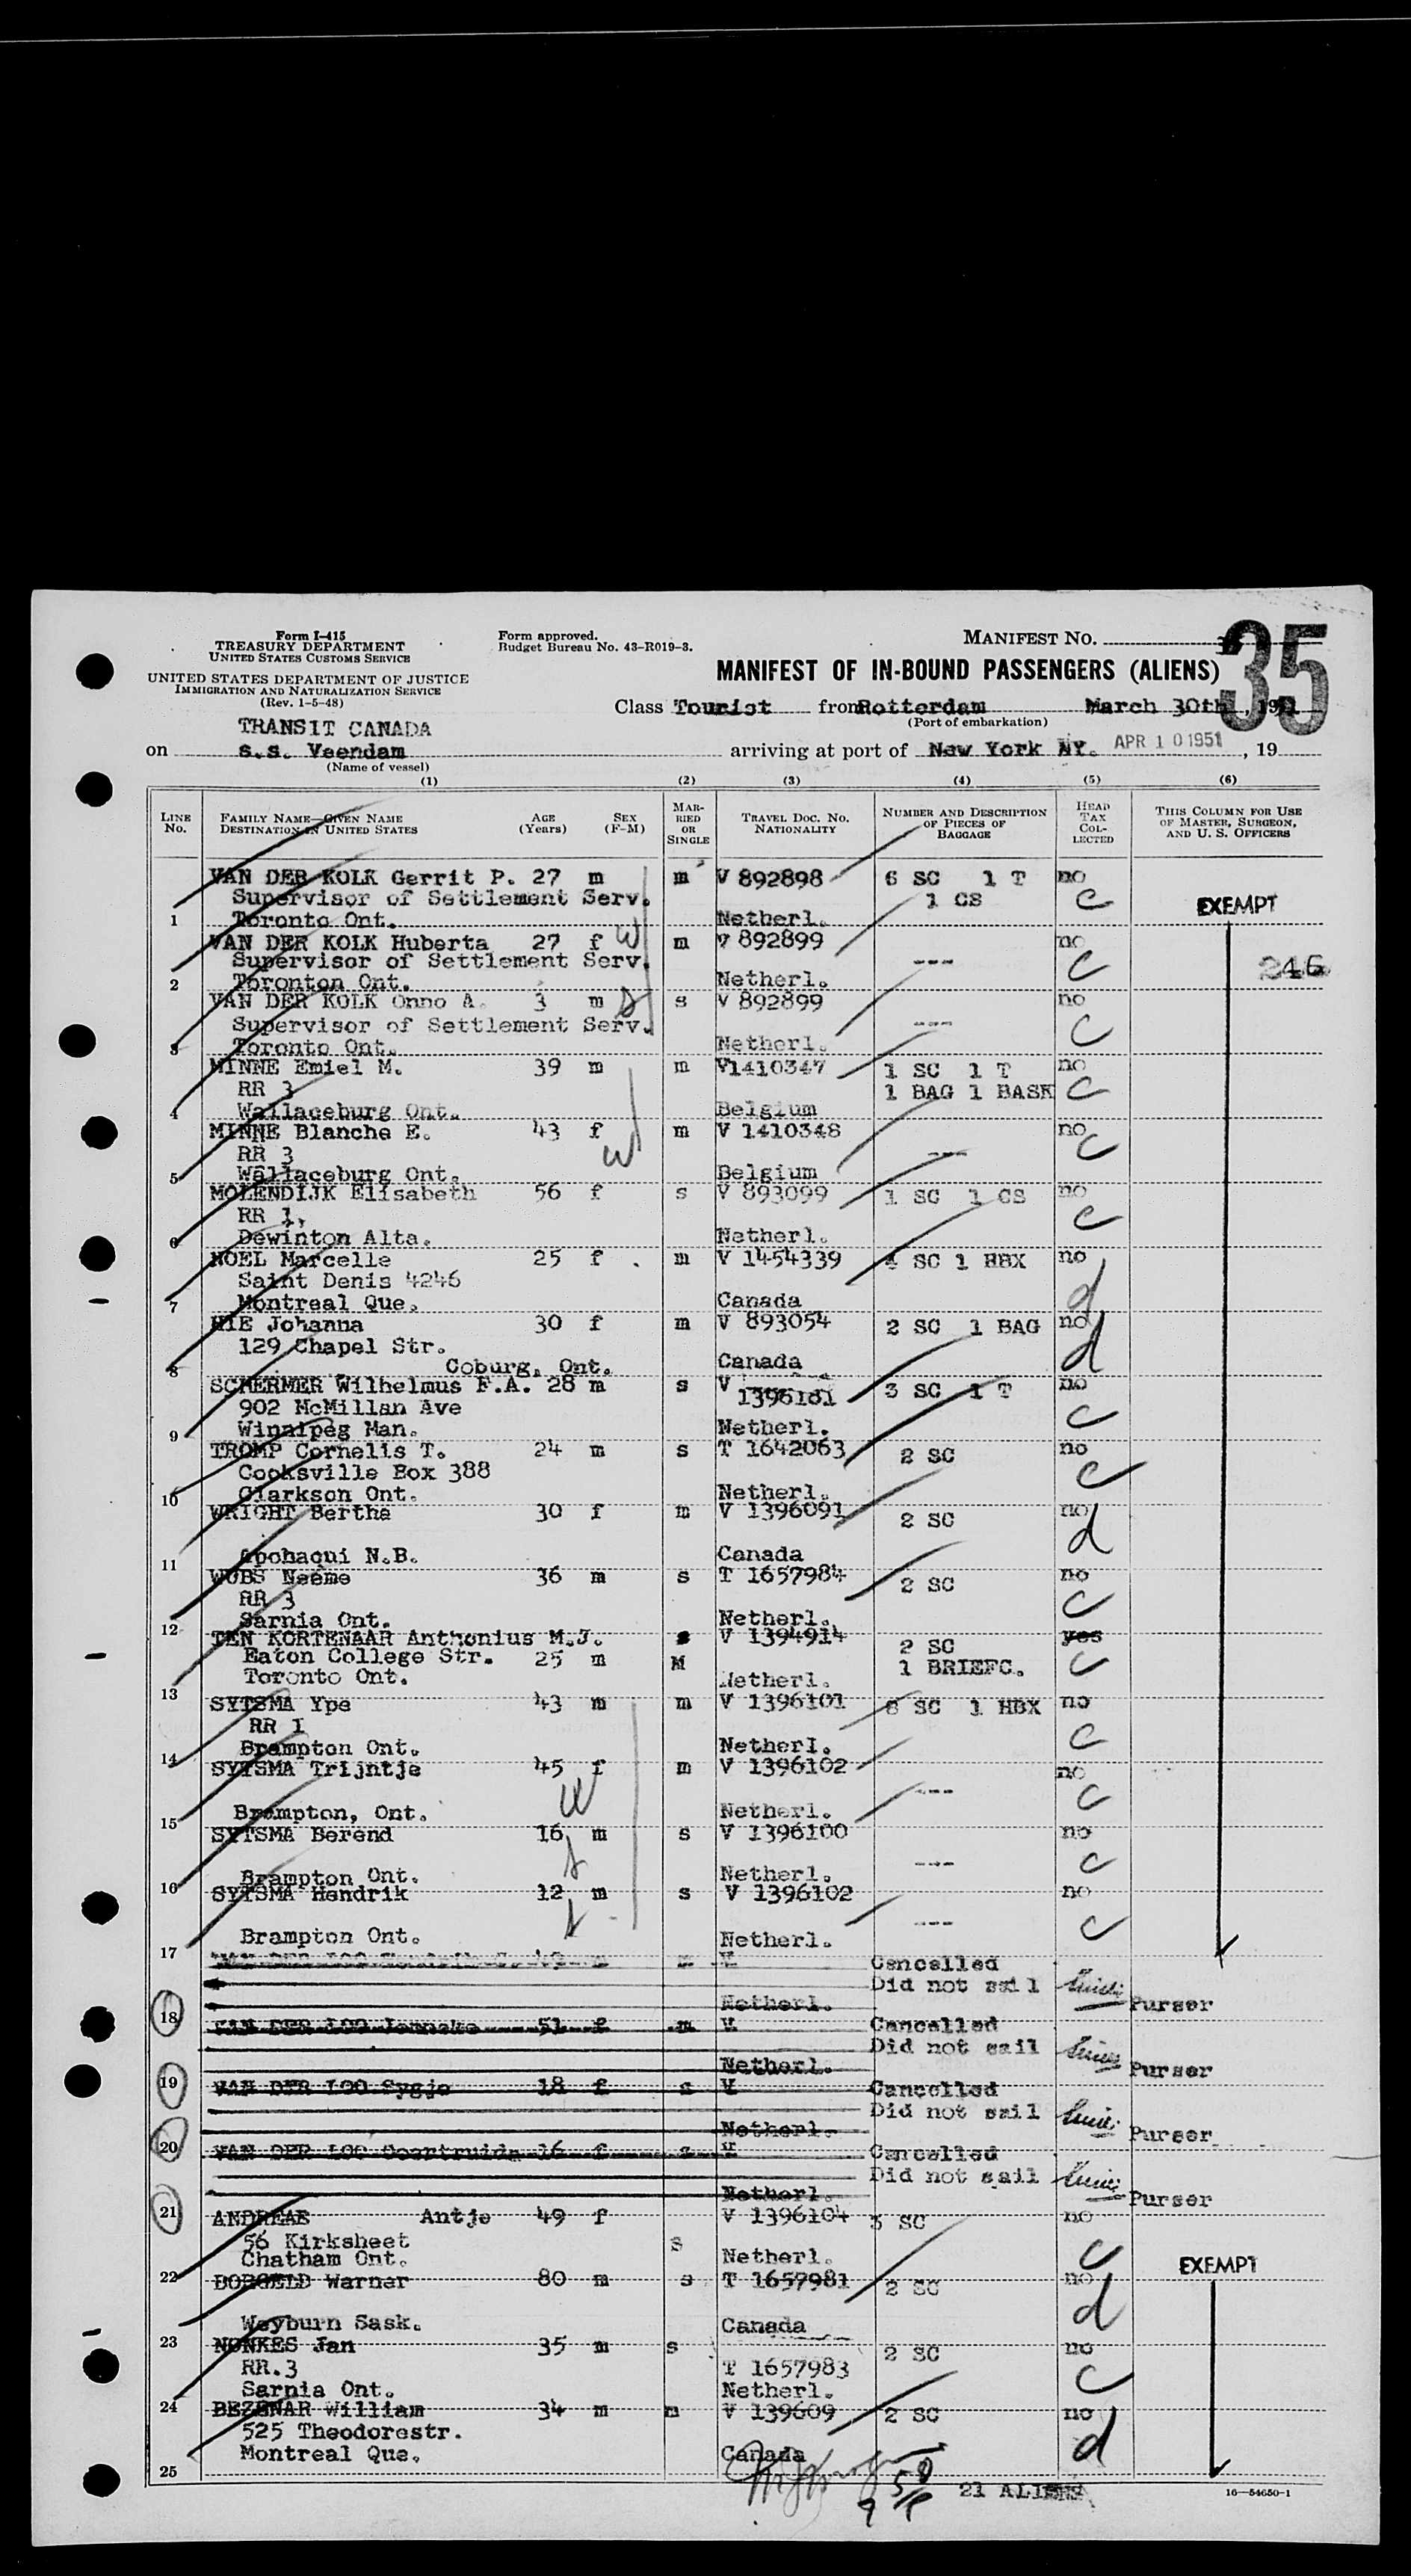 Form I-415
TREASURY DEPARTMENT
UNITED STATES CUSTOMS SERVICE
UNITED STATES DEPARTMENT OF JUSTICE
IMMIGRATION AND NATURALIZATION SERVICE
(Rev. 1-5-48)
Form approved.
Budget Bureau No. 43-R019-3.
MANIFEST NO. 35
MANIFEST OF IN-BOUND PASSENGERS (ALIENS)
Class Tourist from Rotterdam March 30th, 1951
(Port of embarkation)
TRANSIT CANADA
on s.s. Veendam arriving at port of New York NY. APR 10 1951, 19
(Name of vessel)
(1) (2) (3) (4) (5) (6)
LINE No. FAMILY NAME—GIVEN NAME DESTINATION IN UNITED STATES AGE (Years) SEX (F-M) MARRIED OR SINGLE TRAVEL DOC. NO. NATIONALITY NUMBER AND DESCRIPTION OF PIECES OF BAGGAGE HEAD TAX COLLECTED THIS COLUMN FOR USE OF MASTER, SURGEON, AND U. S. OFFICERS
VAN DER KOLK Gerrit P. 27 m m V 892898 6 SC 1 T no
Supervisor of Settlement Serv. 1 CS c EXEMPT
1 Toronto Ont. Netherl.
VAN DER KOLK Huberta 27 f W m V 892899 no
Supervisor of Settlement Serv. --- c 246
2 Toronton Ont. Netherl.
VAN DER KOLK Onno A. 3 m s s V 892899 no
Supervisor of Settlement Serv. --- c
3 Toronto Ont. Netherl.
MINNE Emiel M. 39 m m V1410347 1 SC 1 T no
RR 3 1 BAG 1 BASK c
4 Wallaceburg Ont. Belgium
MINNE Blanche E. 43 f m V 1410348 no
RR 3 W --- c
5 Wallaceburg Ont. Belgium
MOLENDIJK Elisabeth 56 f s V 893099 1 SC 1 CS no
RR 1, c
6 Dewinton Alta. Netherl.
NOEL Marcelle 25 f . m V 1454339 4 SC 1 HBX no
Saint Denis 4246 d
7 Montreal Que. Canada
HIE Johanna 30 f m V 893054 2 SC 1 BAG no
129 Chapel Str. d
8 Coburg, Ont. Canada
SCHERMER Wilhelmus F.A. 28 m s V 1396181 3 SC 1 T no
902 McMillan Ave c
9 Winnipeg Man. Netherl.
TROMP Cornelis T. 24 m s T 1642063 2 SC no
Cooksville Box 388 c
10 Clarkson Ont. Netherl.
WRIGHT Bertha 30 f m V 1396091 2 SC no
d
11 Apohaqui N.B. Canada
WUBS Neeme 36 m s T 1657984 2 SC no
RR 3 c
12 Sarnia Ont. Netherl.
TEN KORTENAAR Anthonius M.J. s V 1394914 2 SC yes
Eaton College Str. 25 m M 1 BRIEFC. c
13 Toronto Ont. Netherl.
SYTSMA Ype 43 m m V 1396101 8 SC 1 HBX no
RR 1 c
14 Brampton Ont. Netherl.
SYTSMA Trijntje 45 f m V 1396102 no
W --- c
15 Brampton, Ont. Netherl.
SYTSMA Berend 16 m s V 1396100 no
s --- c
16 Brampton Ont. Netherl.
SYTSMA Hendrik 12 m s V 1396102 no
s --- c
17 Brampton Ont. Netherl.
VAN DER LOO Hendrik 49 m m V Cancelled
Did not sail
18 Netherl. Purser
VAN DER LOO Janneke 51 f m V Cancelled
Did not sail
19 Netherl. Purser
VAN DER LOO Sygje 18 f s V Cancelled
Did not sail
20 Netherl. Purser
VAN DER LOO Geertruida 16 f s V Cancelled
Did not sail
21 Netherl. Purser
ANDREAE Antje 49 f V 1396104 3 SC no
56 Kirksheet s c EXEMPT
22 Chatham Ont. Netherl.
BORGELD Warner 80 m s T 1657981 2 SC no
d
23 Weyburn Sask. Canada
NONKES Jan 35 m s 2 SC no
RR.3 T 1657983 c
24 Sarnia Ont. Netherl.
BEZENAR William 34 m m V 139609 2 SC no
525 Theodorestr. d
25 Montreal Que. Canada
21 ALIENS
16—54650-1